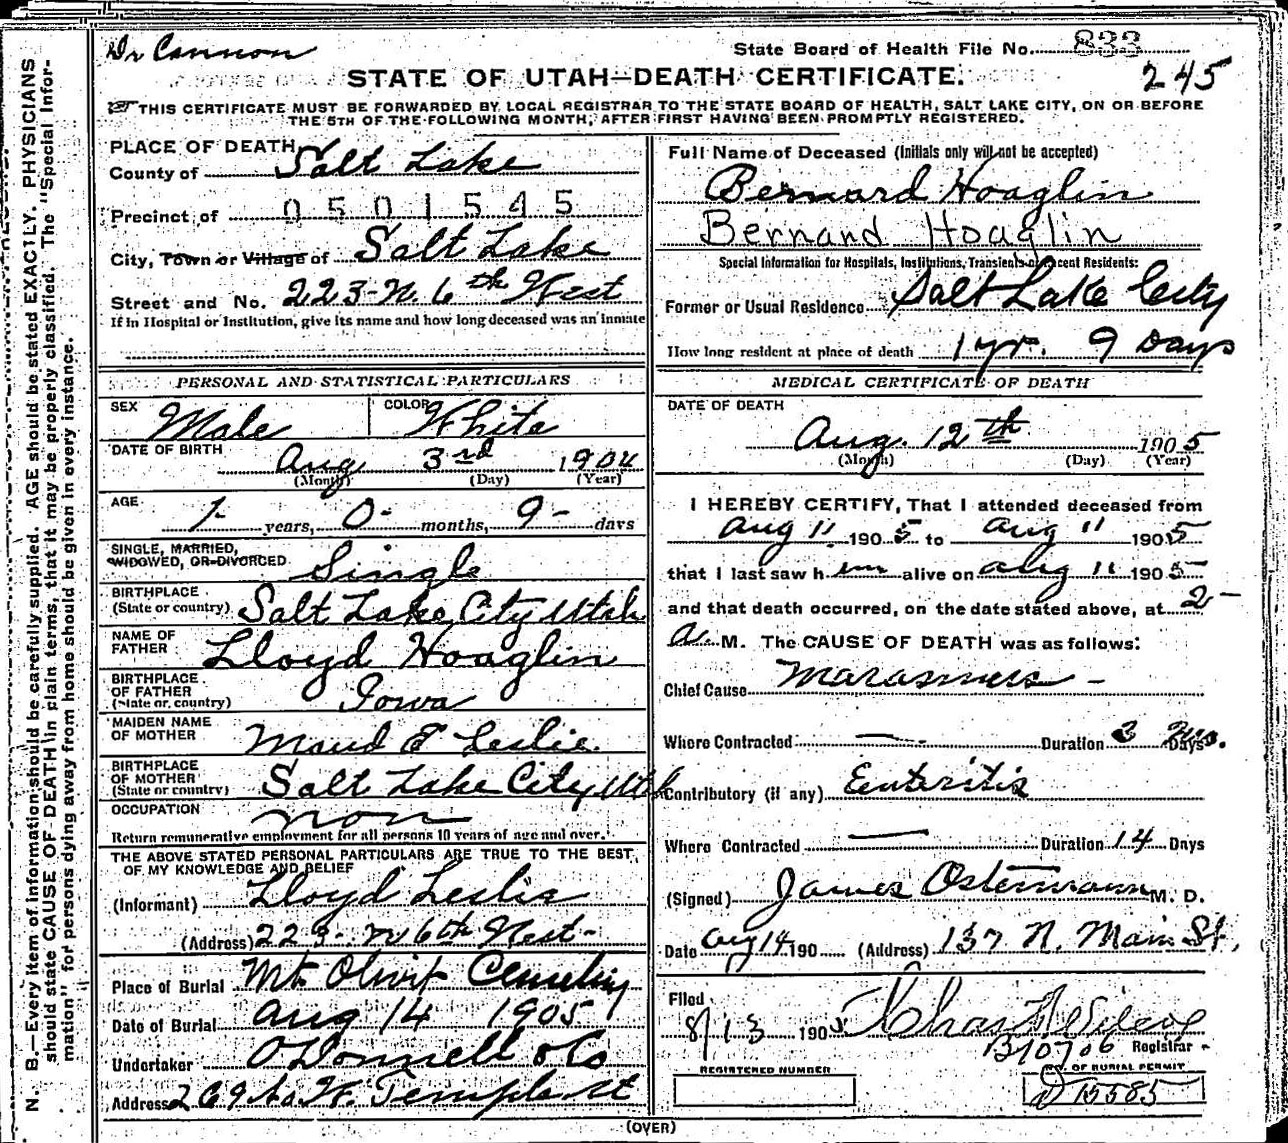 Dr Cannon
State Board of Health File No. 833
245
STATE OF UTAH—DEATH CERTIFICATE.
THIS CERTIFICATE MUST BE FORWARDED BY LOCAL REGISTRAR TO THE STATE BOARD OF HEALTH, SALT LAKE CITY, ON OR BEFORE
THE 5TH OF THE FOLLOWING MONTH, AFTER FIRST HAVING BEEN PROMPTLY REGISTERED.
N. B.—Every item of information should be carefully supplied. AGE should be stated EXACTLY. PHYSICIANS
should state CAUSE OF DEATH in plain terms, that it may be properly classified. The "Special Infor-
mation" for persons dying away from home should be given in every instance.
PLACE OF DEATH
County of Salt Lake
Precinct of 0501545
City, Town or Village of Salt Lake
Street and No. 223-N. 6th West
If in Hospital or Institution, give its name and how long deceased was an inmate
PERSONAL AND STATISTICAL PARTICULARS
SEX Male COLOR White
DATE OF BIRTH Aug 3rd 1904
(Month) (Day) (Year)
AGE 1- years, 0- months, 9- days
SINGLE, MARRIED,
WIDOWED, OR DIVORCED Single
BIRTHPLACE
(State or country) Salt Lake City Utah
NAME OF
FATHER Lloyd Hoaglin
BIRTHPLACE
OF FATHER
(State or country) Iowa
MAIDEN NAME
OF MOTHER Maud E Leslie
BIRTHPLACE
OF MOTHER
(State or country) Salt Lake City Utah
OCCUPATION non
Return remunerative employment for all persons 10 years of age and over.
THE ABOVE STATED PERSONAL PARTICULARS ARE TRUE TO THE BEST
OF MY KNOWLEDGE AND BELIEF
(Informant) Lloyd Leslie
(Address) 223- N 6th West-
Place of Burial Mt. Olivet Cemetery
Date of Burial Aug 14 1905
Undertaker O'Donnell & Co
Address 269 So W. Temple St
Full Name of Deceased (Initials only will not be accepted)
Bernard Hoaglin
Bernard Hoaglin
Special Information for Hospitals, Institutions, Transients or Recent Residents:
Former or Usual Residence Salt Lake City
How long resident at place of death 1 yr. 9 Days
MEDICAL CERTIFICATE OF DEATH
DATE OF DEATH
Aug. 12th 1905
(Month) (Day) (Year)
I HEREBY CERTIFY, That I attended deceased from
Aug 11. 1905 to Aug 11 1905
that I last saw him alive on Aug 11 1905
and that death occurred, on the date stated above, at 2-
a. M. The CAUSE OF DEATH was as follows:
Chief Cause Marasmus -
Where Contracted — Duration 3 Mos. Days
Contributory (if any) Enteritis
Where Contracted — Duration 14 Days
(Signed) James Ostermann M. D.
Date Aug 14 190 (Address) 137 N. Main St.
Filed
8/13 1905 Chas
B10706 Registrar
REGISTERED NUMBER
NO. OF BURIAL PERMIT
D 15585
(OVER)